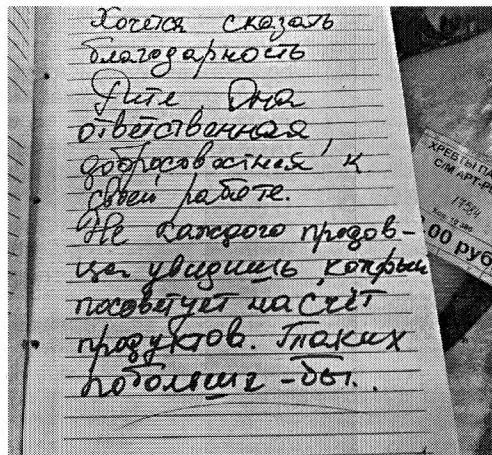 Хочется сказать
благодарность
Рите. Она
ответственная
добросовестная к
своей работе.
Не каждого продов-
ца увидишь, который
посоветует на счёт
продуктов. Таких
побольше - бы.
ХРЕБТЫ
С/М АРТ-Р
.00 руб